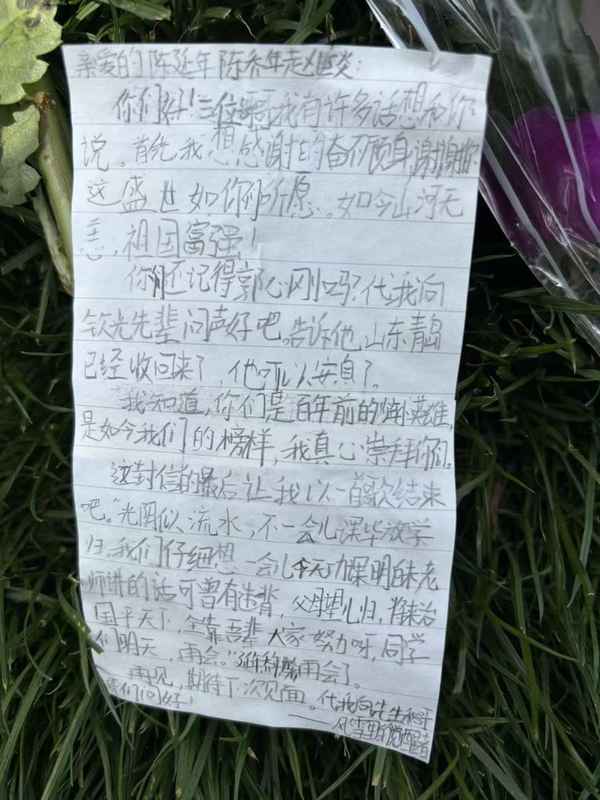 亲爱的陈延年 陈乔年 赵世炎：
你们好！三位 我有许多话想和你
说。首先我想感谢 的奋不顾身 谢谢
这盛世如你们所愿。如今山河无
恙，祖国富强！
你 还记得郭心刚吗？代我向
钦光先辈问声好吧。告诉他，山东青岛
已经收回来了，他可以安息了。
我知道，你们是百年前的 英雄，
是如今我们的榜样，我真心崇拜你们。
这封信的最后让我以一首歌结束
吧。“光阴似流水，不一会儿课毕放学
归。我们仔细想一会儿今天功课明白未 老
师讲的话可曾有违背 父母望儿归，将来治
国平天下，全靠吾辈 大家努力呀，同学
们明天，再会。” 再会了。
再见，期待下次见面。代我向 先生和
们问好！
——